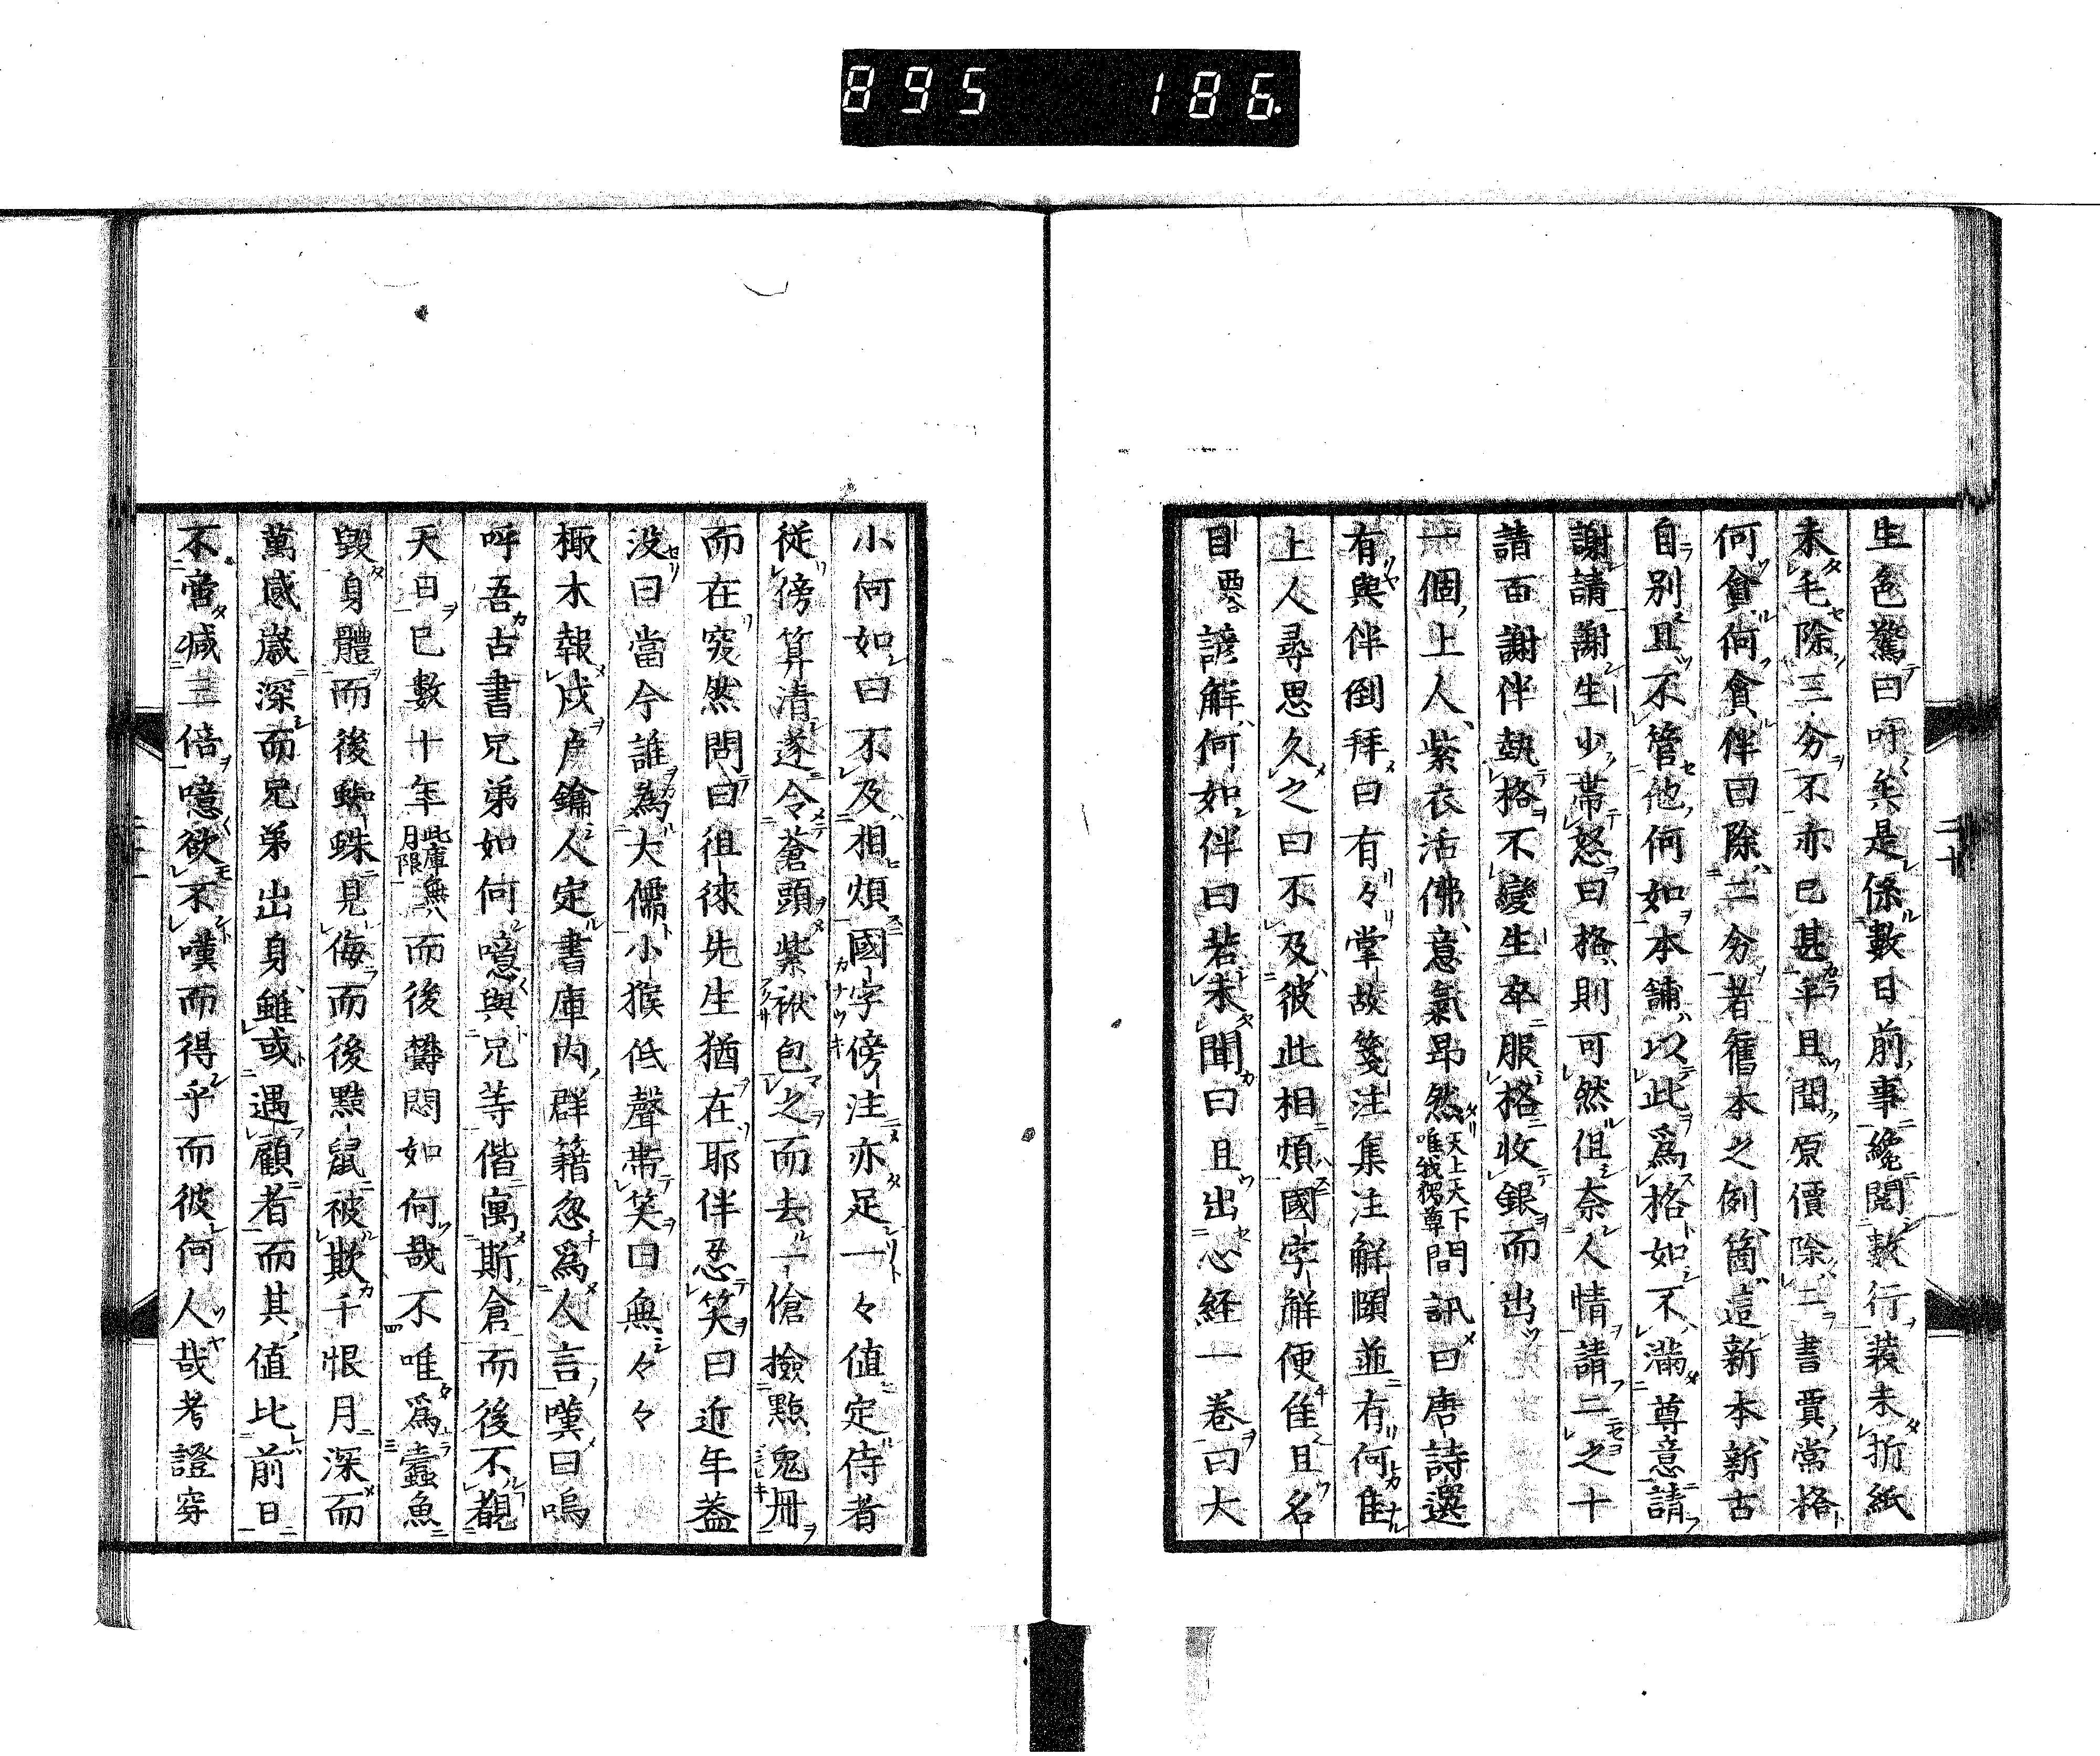 895 186
二十
生色驚曰吁矣是係數日前事纔閲數行装未折紙
未毛除三分不亦已甚乎且聞原價除二書賈常格
何貪何貪伴曰除二分者舊本之例箇這新本新古
自別且不管他何如本舗以此爲格如不滿尊意請
謝請謝生少帯怒曰格則可然但奈人情請二之十
請百謝伴執格不變生卒服格收銀而出
一個上人紫衣活佛意氣昂然天上天下唯我獨尊問訊曰唐詩選
有與伴倒拜曰有々掌故箋注集注解頤並有何佳
上人尋思久之曰不及彼此相煩國字解便佳且名
目要台諺解何如伴曰若未聞曰且出心経一巻曰大
小何如曰不及相煩國字傍注亦足一々値定侍者
従傍算清遂令蒼頭紫袱包之而去一傖撿點鬼冊
而在突然問曰徂徠先生猶在耶伴忍笑曰近年蓋
没曰當今誰為大儒小猴低聲帯笑曰無々々
棷木報戍戸鑰人定書庫内群籍忽爲人言嘆曰嗚
呼吾古書兄弟如何噫與兄等偕寓斯倉而後不覩
天日已數十年此庫無八月限而後鬱悶如何哉不唯爲蠹魚
毀身體而後蜘蛛見侮而後點鼠被欺千恨月深而
萬感歳深而兄弟出身雖或遇顧者而其値比前日
不啻減三倍噫欲不嘆而得乎而彼何人哉考證穿